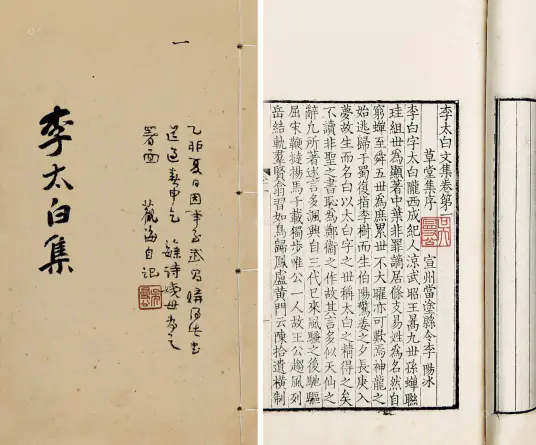 一
李太白集
署面
自記
李太白文集卷第一
草堂集序
宣州當塗縣令李陽冰
李白字太白隴西成紀人涼武昭王暠九世孫蟬聯
珪組世爲顯著中葉非罪謫居條支易姓爲名然自
窮蟬至舜五世爲庶累世不大曜亦可歎焉神龍之
始逃歸于蜀復指李樹而生伯陽驚姜之夕長庚入
夢故生而名白以太白字之世稱太白之精得之矣
不讀非聖之書恥爲鄭衛之作故其言多似天仙之
辭凡所著述言多諷興自三代已來風騷之後馳驅
屈宋鞭撻揚馬千載獨步唯公一人故王公趨風列
岳結軌羣賢翕習如鳥歸鳳盧黃門云陳拾遺橫制